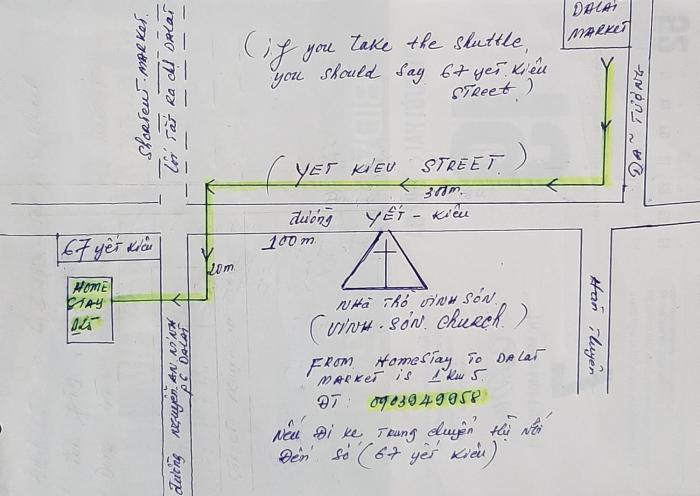 DALAT
MARKET
(if you Take the shuttle,
you should say 67 yết kiêu
STReet.)
SHORTCUT-MARKET
Lối TắT Ra chợ DALAT
DA TƯỢNG
( YET KIEU STREET )
300m.
đường YẾT - KIÊU
100m
67 yết kiêu
20m.
HOME
STAY
D25
NHà THỜ VINH SƠN.
(VINH-SƠN. Church.)
FROM HomeSTay To DALAT
MARKET is 1 Km 5
ĐT: 0903949958
Nếu Đi xe Trung chuyển thì Nói
Đến Số (67 yết kiêu)
đường Nguyễn AN NINH
P6 DALAT
Hàn Thuyên